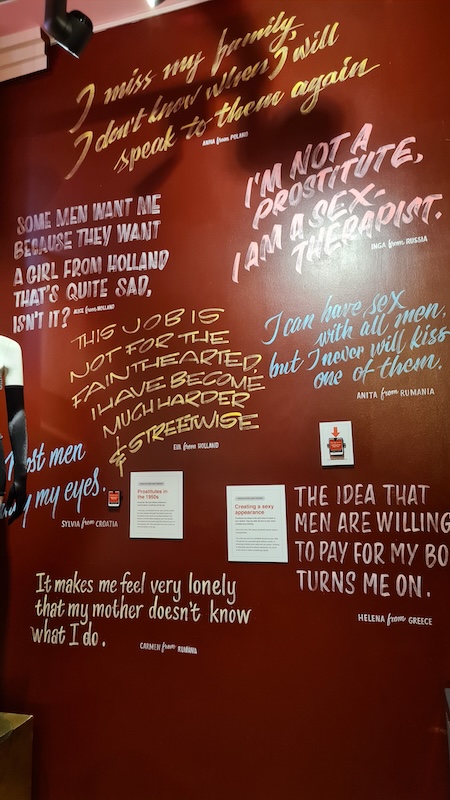 I miss my family,
I don't know when I will
speak to them again
ANNA from POLAND
I'M NOT A
PROSTITUTE,
I AM A SEX-
THERAPIST.
INGA from RUSSIA
SOME MEN WANT ME
BECAUSE THEY WANT
A GIRL FROM HOLLAND
THAT'S QUITE SAD,
ISN'T IT?
ALICE from HOLLAND
I can have sex
with all men,
but I never will kiss
one of them.
ANITA from RUMANIA
THIS JOB IS
NOT FOR THE
FAINTHEARTED,
I HAVE BECOME
MUCH HARDER
& STREETWISE
EVA from HOLLAND
men
my eyes.
SYLVIA from CROATIA
Prostitutes in
the 1960s
Creating a sexy
appearance
THE IDEA THAT
MEN ARE WILLING
TO PAY FOR MY BO
TURNS ME ON.
HELENA from GREECE
It makes me feel very lonely
that my mother doesn't know
what I do.
CARMEN from RUMANIA